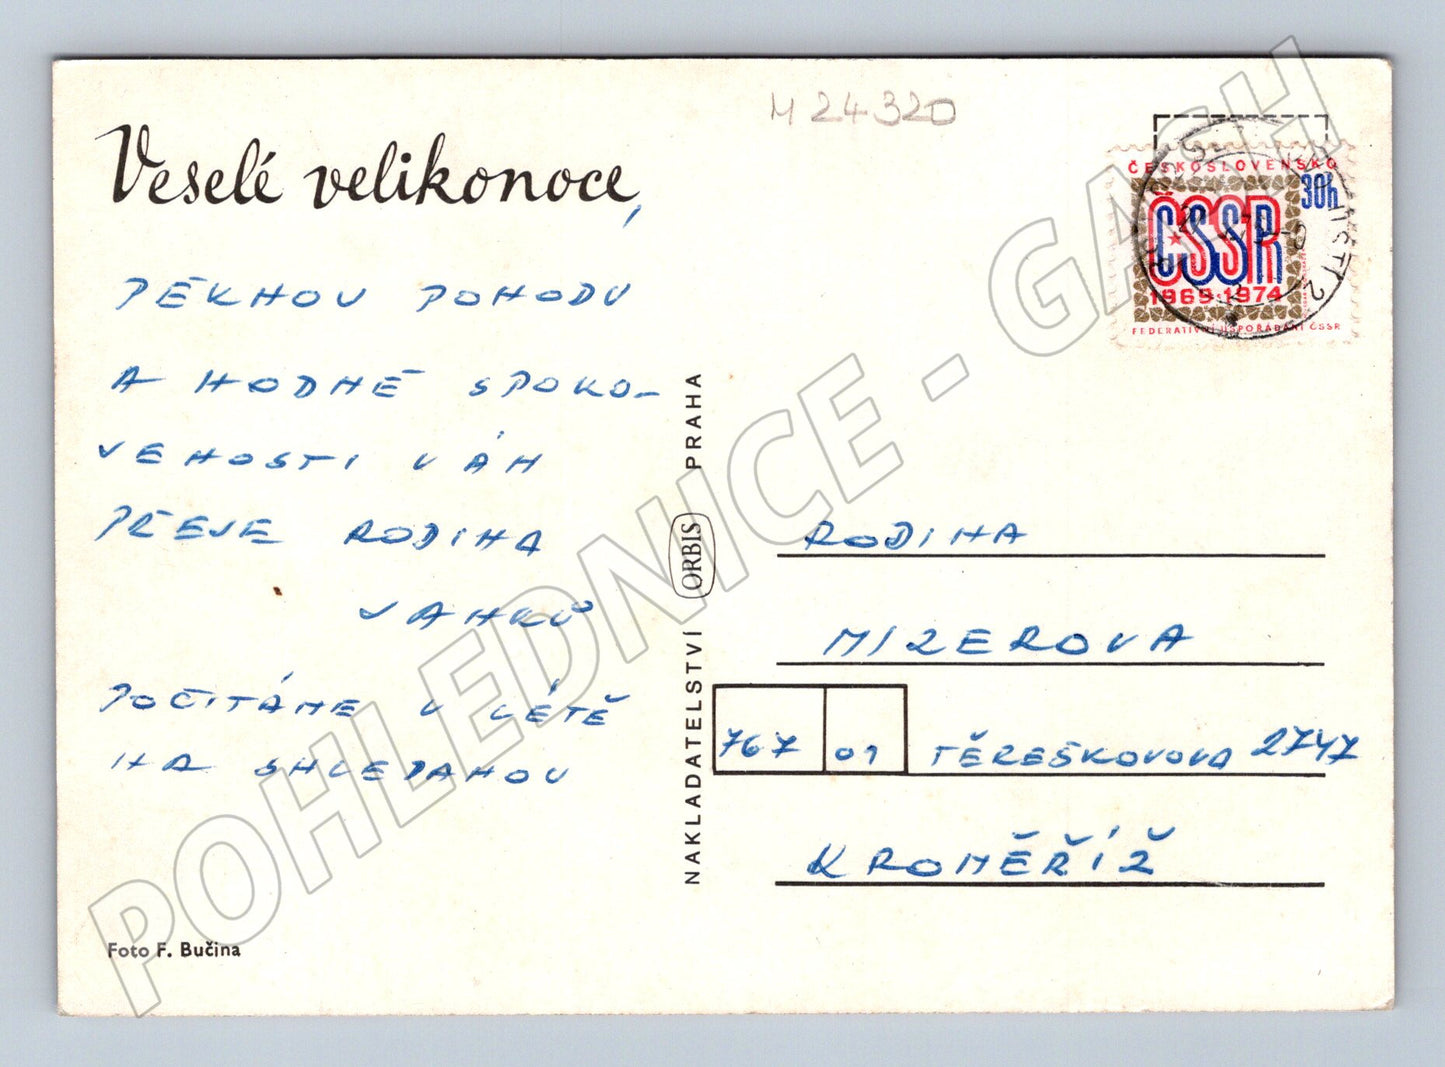 M 24320
Veselé velikonoce,
PĚKNOU POHODU
A HODNĚ SPOKO-
JENOSTI VÁM
PŘEJE RODINA
JANKŮ
POČÍTÁME V LÉTĚ
NA SHLEDANOU
Foto F. Bučina
NAKLADATELSTVÍ ORBIS PRAHA
ČESKOSLOVENSKO
30h
ČSSR
1969-1974
FEDERATIVNÍ USPOŘÁDÁNÍ ČSSR
RODINA
MIZEROVA
767 01 TĚREŠKOVOVA 2747
KROMĚŘÍŽ
POHLEDNICE - GASH